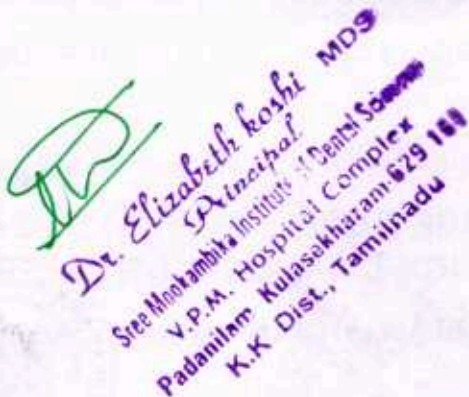 Dr. Elizabeth koshi MDS
Principal
Sree Mookambika Institute of Dental Sciences
V.P.M. Hospital Complex
Padanilam Kulasekharam-629 160
K.K Dist., Tamilnadu